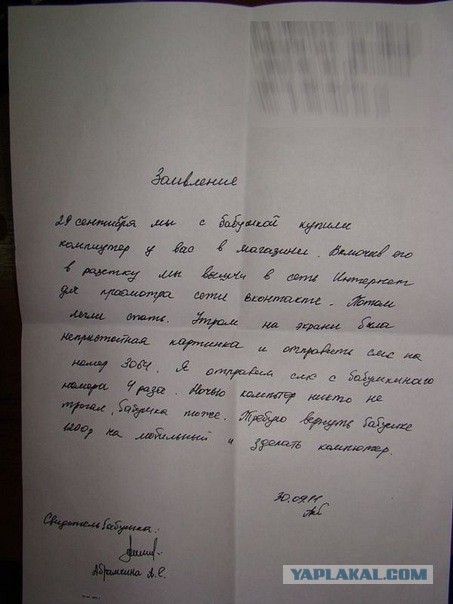 Заивление
29 сентября мы с бабушкой купили
компиутер у вас в магазине. Включив его
в разетку мы вышли в сеть Интернет
для просмотра сети вконтакте. Потом
легли спать. Утром на экране была
непристойная картинка и отправить смс на
номер 3064. Я отправил смс с бабушкиного
номера 4 раза. Ночью компьтер никто не
трогал, бабушка тоже. Требую вернуть бабушке
1200р на мобильный и зделать компютер.
30.09.11
Свидетель бабушка:
Абрамкина А.С.
YAPLAKAL.COM